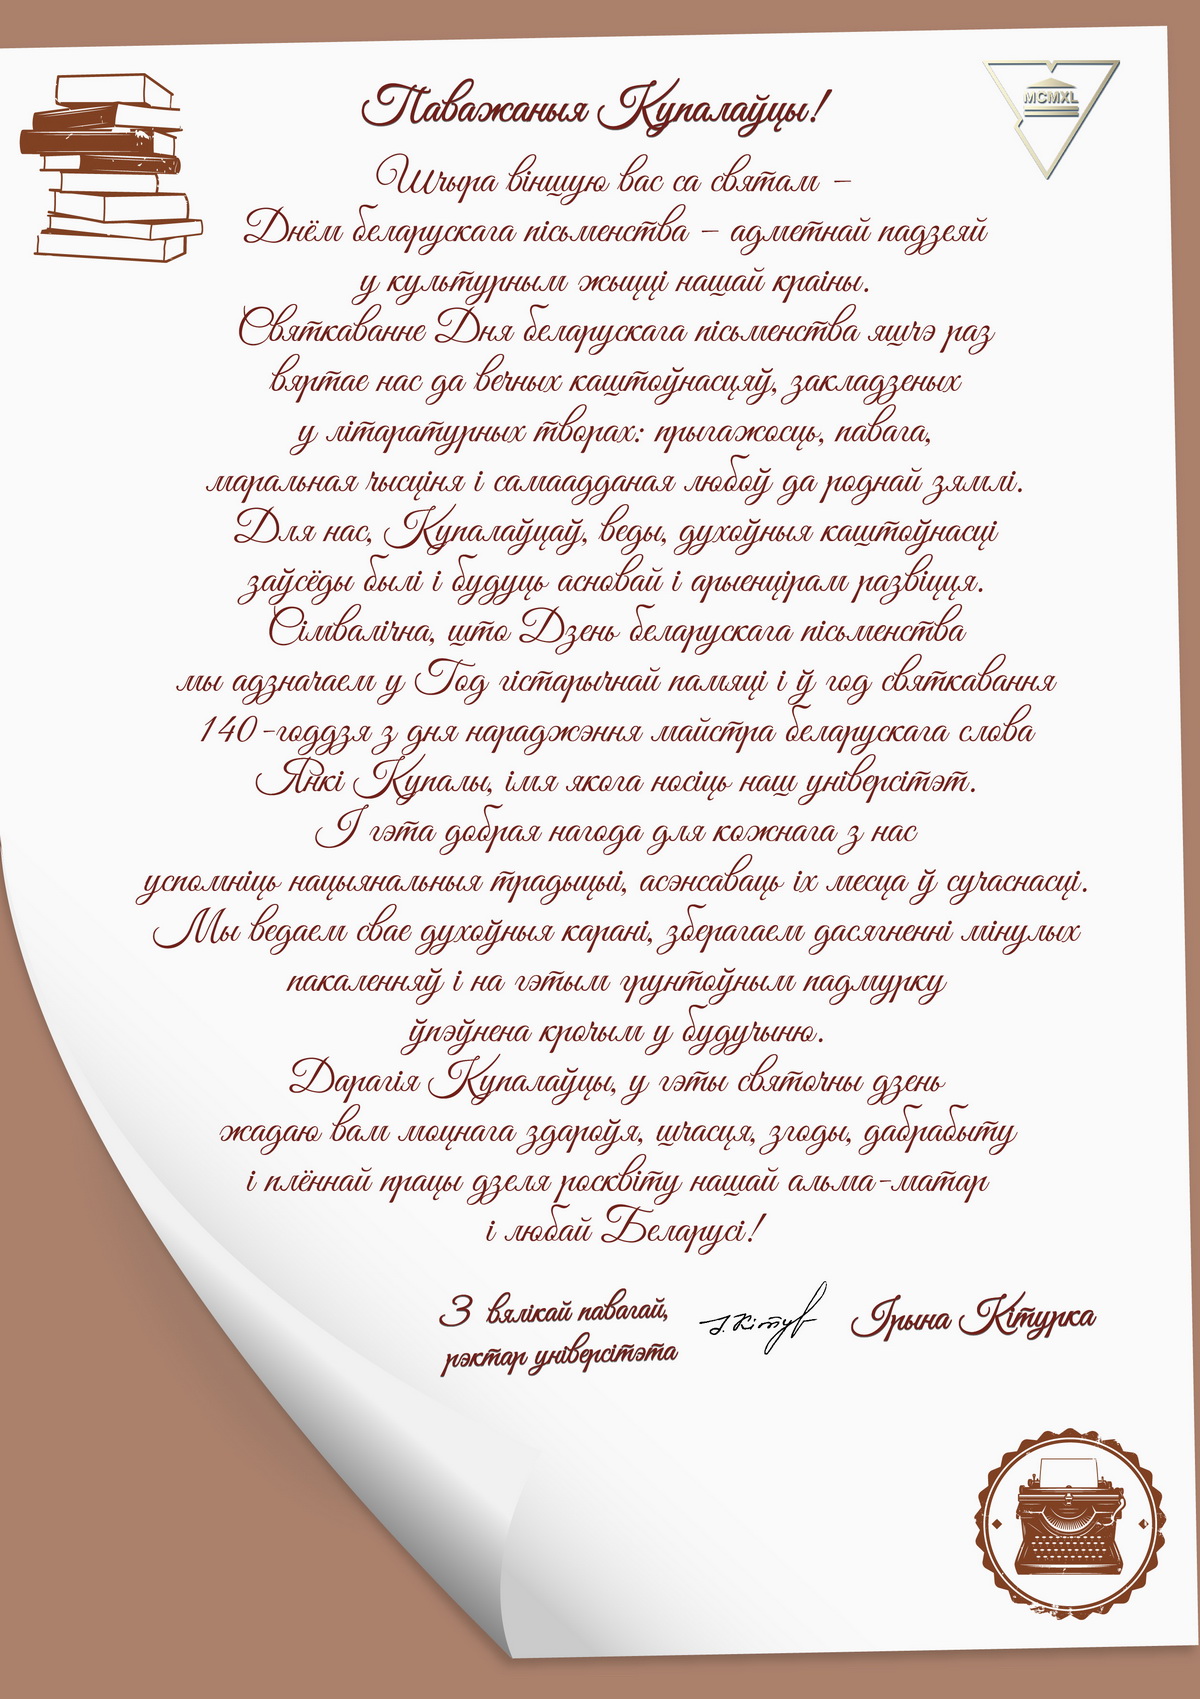 Паважаныя Купалаўцы!
MCMXL
Шчыра віншую вас са святам –
Днём беларускага пісьменства – адметнай падзеяй
у культурным жыцці нашай краіны.
Святкаванне Дня беларускага пісьменства яшчэ раз
вяртае нас да вечных каштоўнасцяў, закладзеных
у літаратурных творах: прыгажосць, павага,
маральная чысціня і самаадданая любоў да роднай зямлі.
Для нас, Купалаўцаў, веды, духоўныя каштоўнасці
заўсёды былі і будуць асновай і арыенцірам развіцця.
Сімвалічна, што Дзень беларускага пісьменства
мы адзначаем у Год гістарычнай памяці і ў год святкавання
140-годдзя з дня нараджэння майстра беларускага слова
Янкі Купалы, імя якога носіць наш універсітэт.
І гэта добрая нагода для кожнага з нас
успомніць нацыянальныя традыцыі, асэнсаваць іх месца ў сучаснасці.
Мы ведаем свае духоўныя карані, зберагаем дасягненні мінулых
пакаленняў і на гэтым грунтоўным падмурку
ўпэўнена крочым у будучыню.
Дарагія Купалаўцы, у гэты святочны дзень
жадаю вам моцнага здароўя, шчасця, згоды, дабрабыту
і плённай працы дзеля росквіту нашай альма-матар
і любай Беларусі!
З вялікай павагай,
рэктар універсітэта
Ірына Кітурка